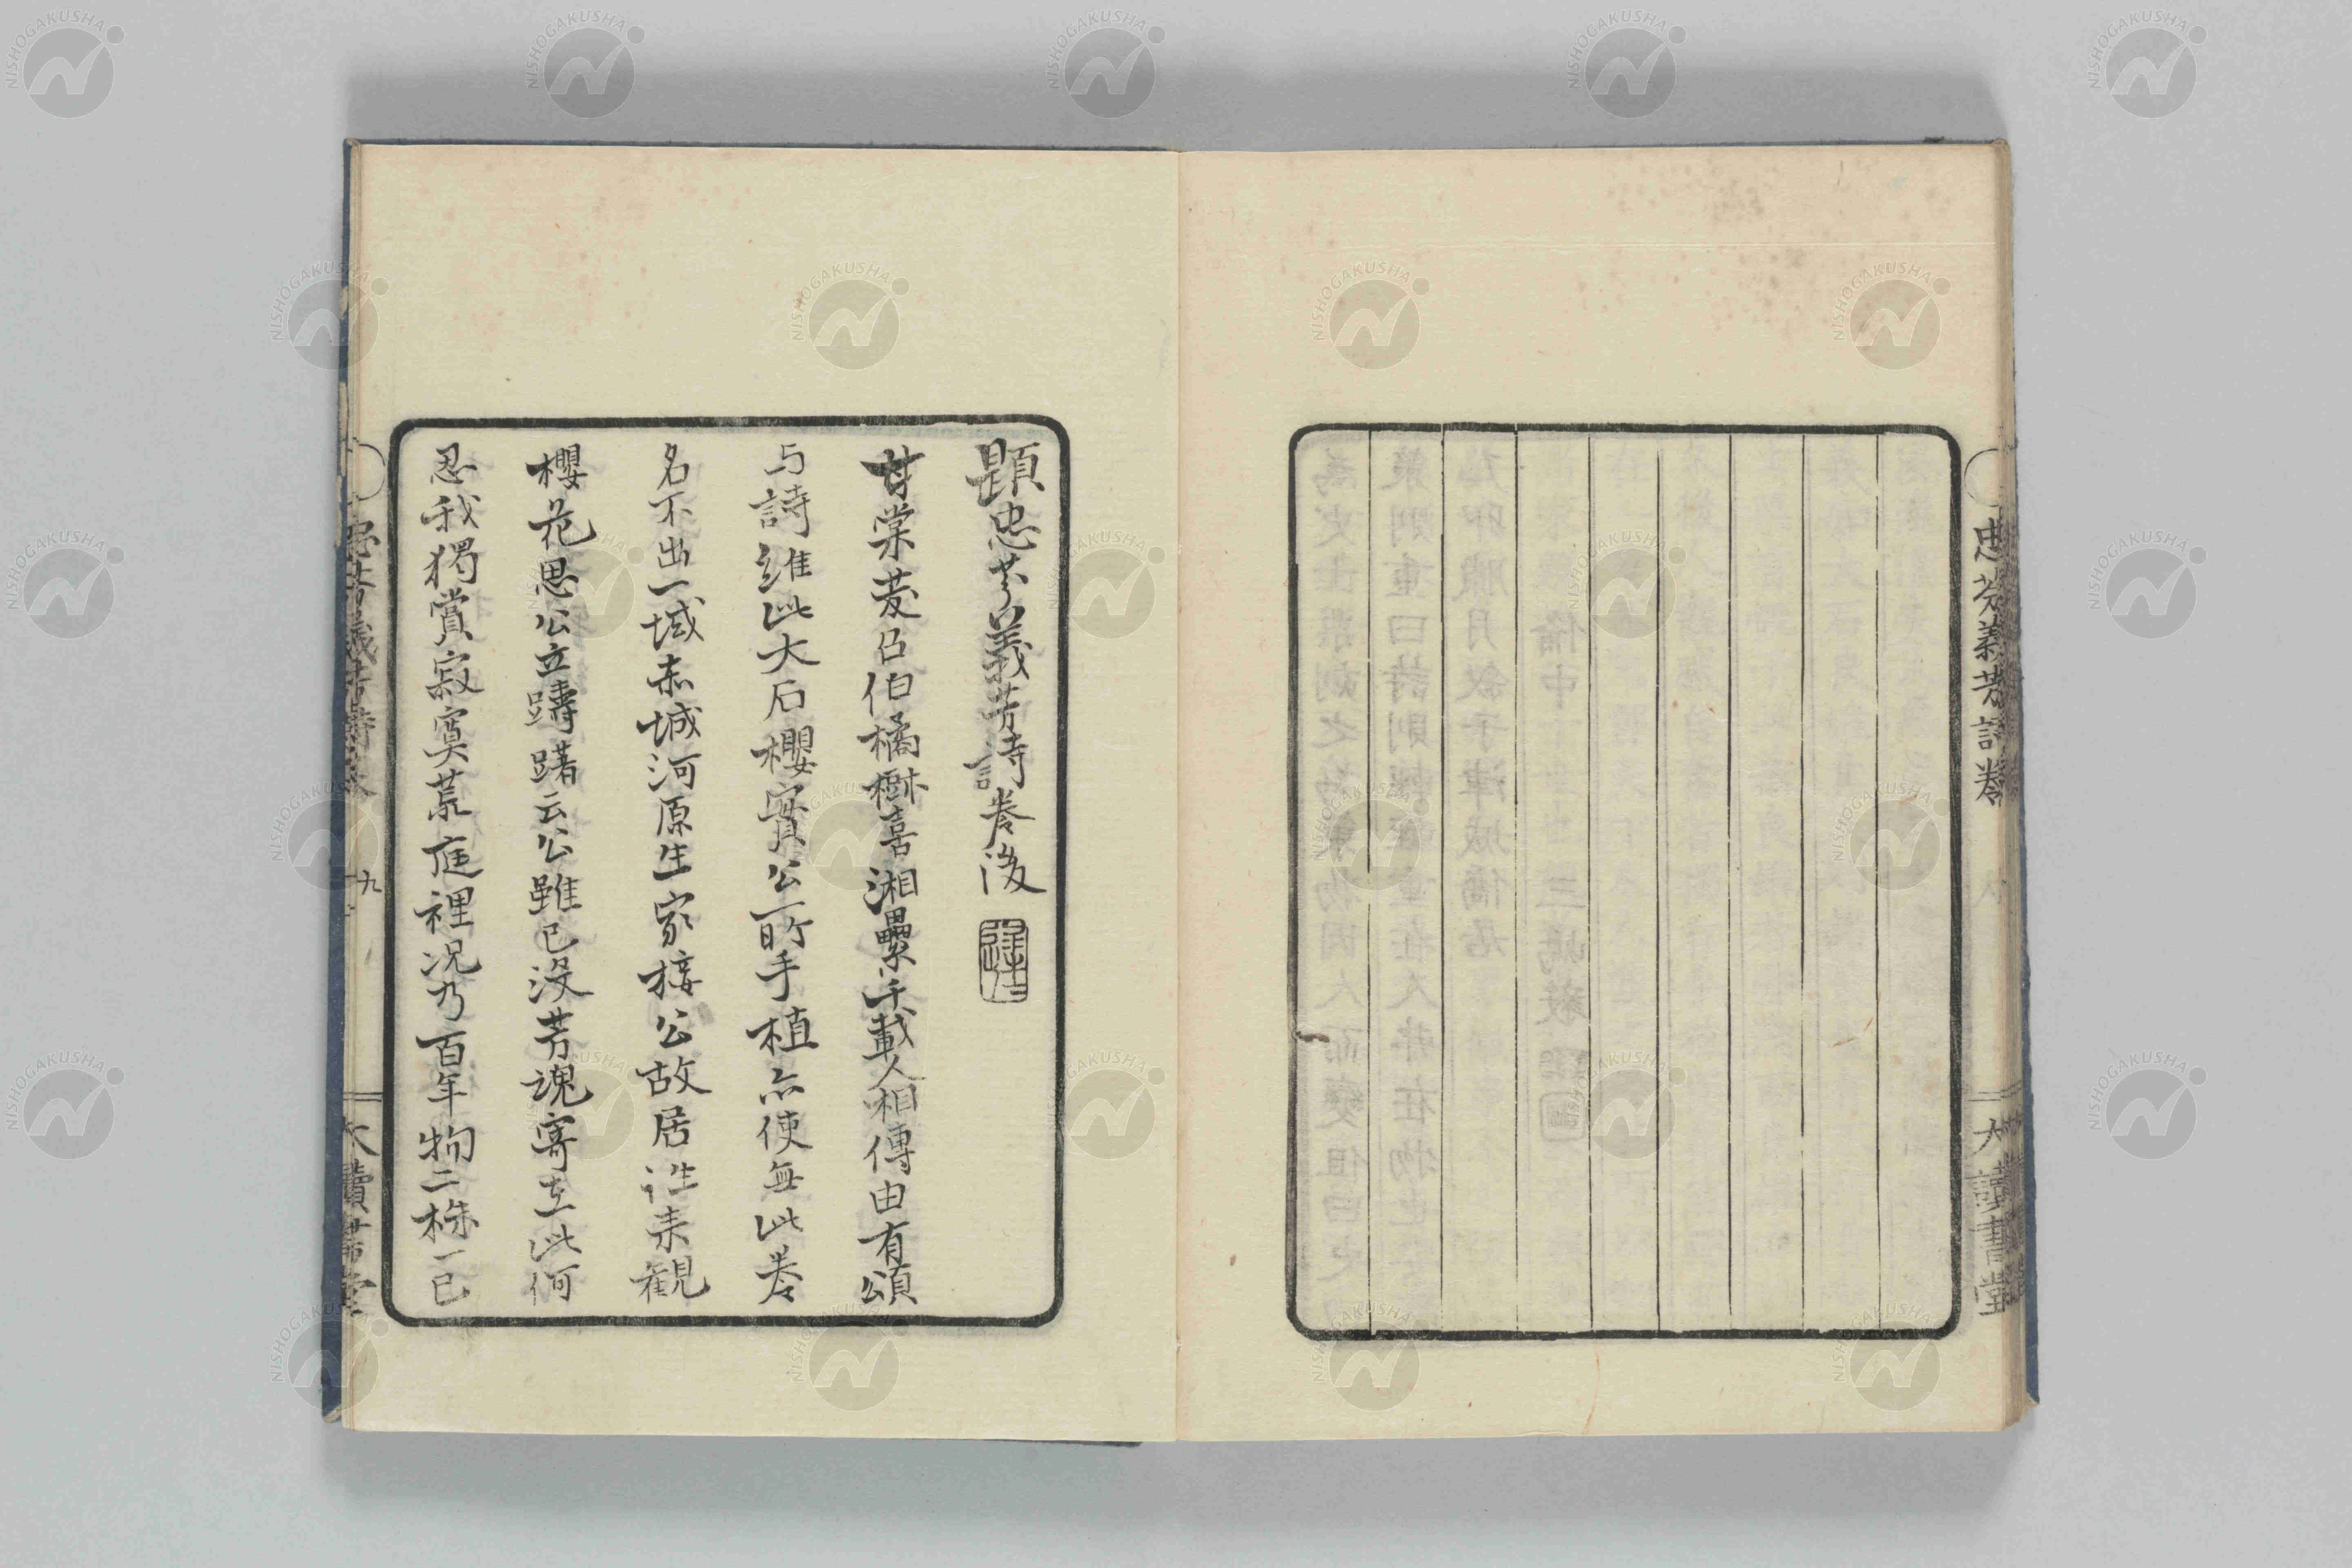 忠芬義芳詩卷
八
大讀書堂
題忠芬義芳詩卷後
甘棠茇召伯橘樹喜湘纍千載人相傳由有頌
与詩維此大石櫻實公所手植亦使無此卷
名不出一域赤城河原生家接公故居往来観
櫻花思公立躊躇云公雖已没芳魂寄在此何
忍我獨賞寂寞荒庭裡况乃百年物二株一已
九
NISHOGAKUSHA